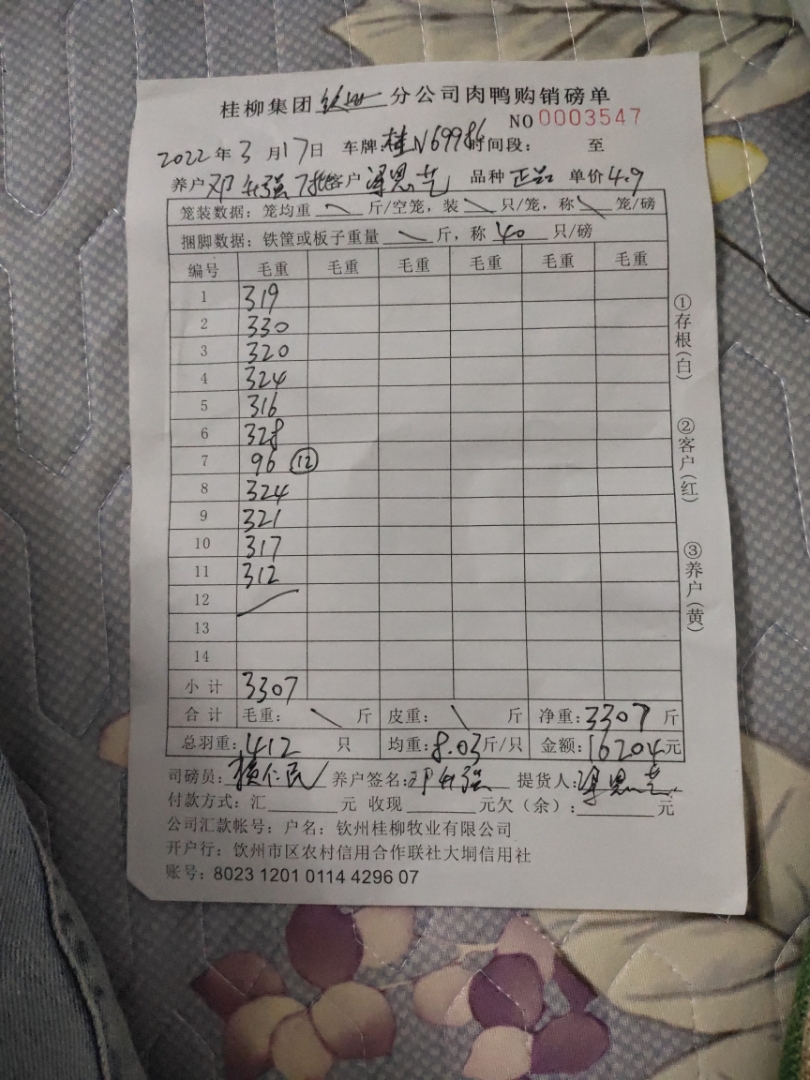 桂柳集团 钦州 分公司肉鸭购销磅单
NO 0003547
2022 年 3 月 17 日 车牌: 桂N69986 时间段: 至
养户 邓 强 客户 梁思芝 品种 单价 4.9
笼装数据: 笼均重 \ 斤/空笼, 装 \ 只/笼, 称 \ 笼/磅
捆脚数据: 铁筐或板子重量 \ 斤, 称 40 只/磅
编号 毛重 毛重 毛重 毛重 毛重 毛重
1 319
2 330
3 320
4 324
5 316
6 328
7 96 ⑫
8 324
9 321
10 317
11 312
12
13
14
小计 3307
合计 毛重: \ 斤 皮重: \ 斤 净重: 3307 斤
总羽重: 412 只 均重: 8.03 斤/只 金额: 16204 元
司磅员: 仁民 养户签名: 邓 强 提货人: 梁思芝
付款方式: 汇 元 收现 元欠(余): 元
公司汇款帐号: 户名: 钦州桂柳牧业有限公司
开户行: 钦州市区农村信用合作联社大垌信用社
账号: 8023 1201 0114 4296 07
①存根(白)
②客户(红)
③养户(黄)